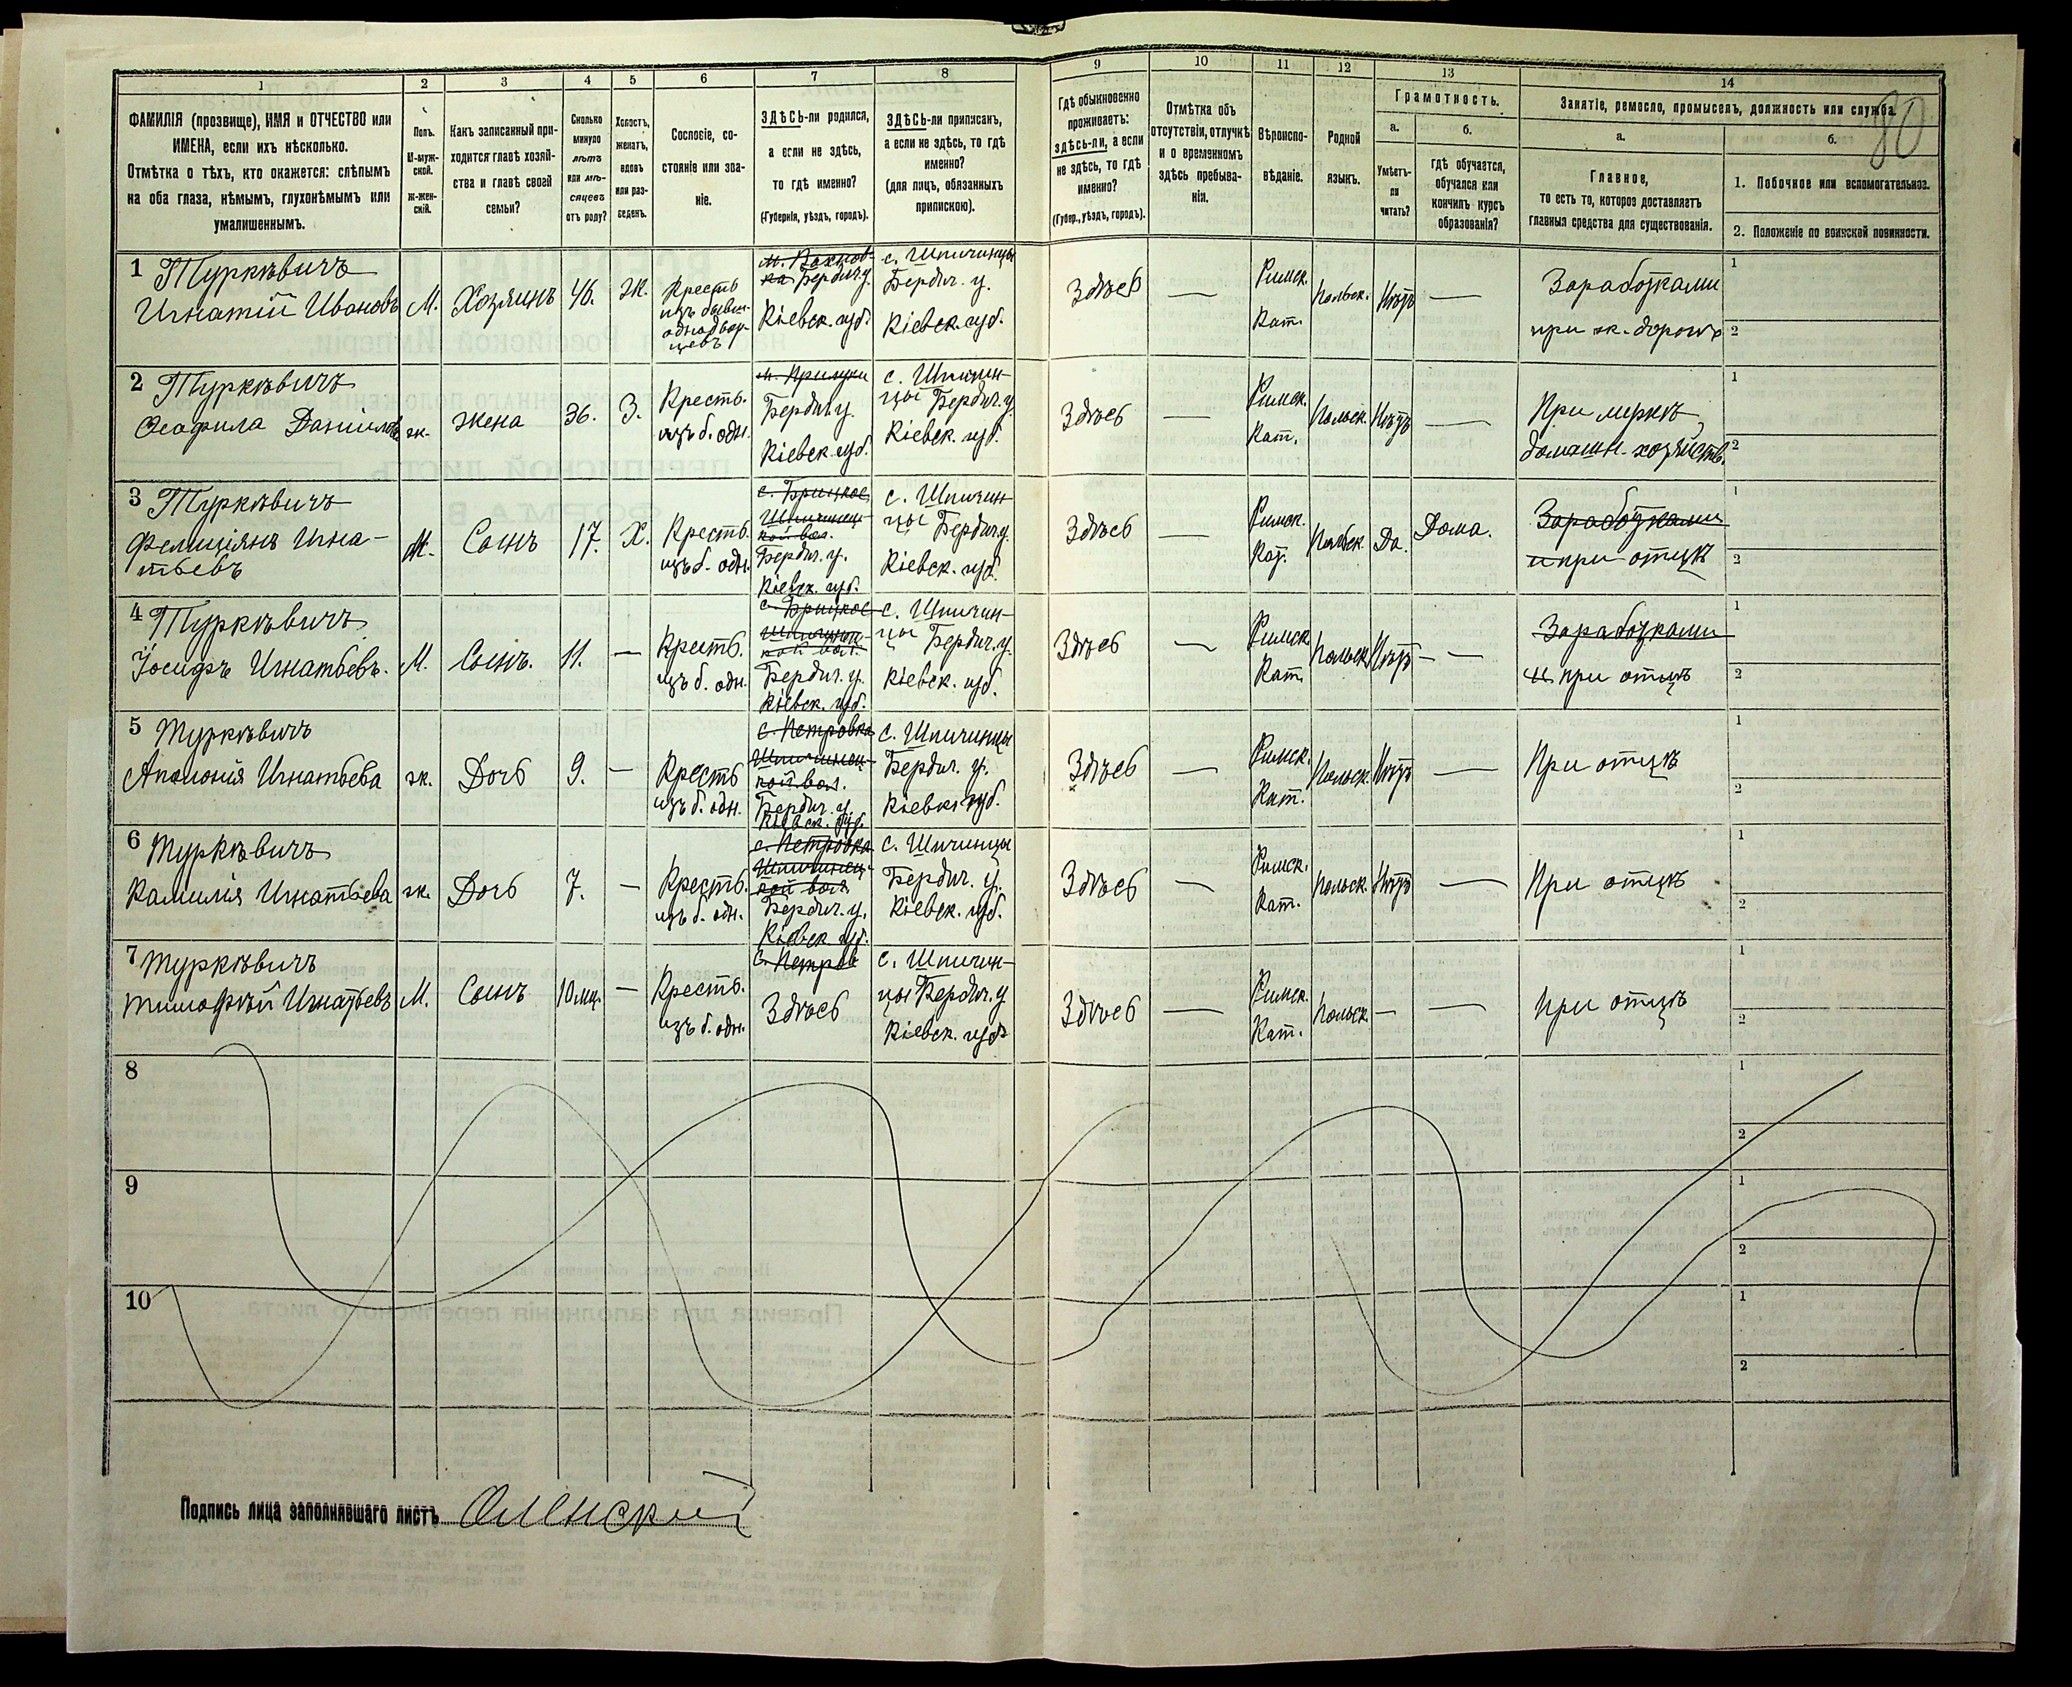 80
1
2
3
4
5
6
7
8
9
10
11
12
13
14
ФАМИЛІЯ (прозвище), ИМЯ и ОТЧЕСТВО или
ИМЕНА, если ихъ нѣсколько.
Отмѣтка о тѣхъ, кто окажется: слѣпымъ
на оба глаза, нѣмымъ, глухонѣмымъ или
умалишеннымъ.
Полъ.
М-муж-
ской.
Ж-жен-
скій.
Какъ записанный при-
ходится главѣ хозяй-
ства и главѣ своей
семьи?
Сколько
минуло
лѣтъ
или мѣ-
сяцевъ
отъ роду?
Холостъ,
женатъ,
вдовъ
или раз-
веденъ.
Сословіе, со-
стояніе или зва-
ніе.
ЗДѢСЬ-ли родился,
а если не здѣсь,
то гдѣ именно?
(Губернія, уѣздъ, городъ).
ЗДѢСЬ-ли приписанъ,
а если не здѣсь, то гдѣ
именно?
(для лицъ, обязанныхъ
припискою).
Гдѣ обыкновенно
проживаетъ:
здѣсь-ли, а если
не здѣсь, то гдѣ
именно?
(Губер., уѣздъ, городъ).
Отмѣтка объ
отсутствіи, отлучкѣ
и о временномъ
здѣсь пребыва-
ніи.
Вѣроиспо-
вѣданіе.
Родной
языкъ.
Грамотность.
а.
Умѣетъ-
ли
читать?
б.
гдѣ обучается,
обучался или
кончилъ курсъ
образованія?
Занятіе, ремесло, промыселъ, должность или служба.
а.
Главное,
то есть то, которое доставляетъ
главныя средства для существованія.
б.
1. Побочное или вспомогательное.
2. Положеніе по воинской повинности.
1 Туркѣвичъ
Игнатій Ивановъ
М.
Хозяинъ
46.
Ж.
Крестъ
изъ бывш.
однодвор-
цевъ
м.
Бердич. у.
Кіевск. губ.
с. Шпичинцы
Бердич. у.
Кіевск. губ.
Здѣсь
—
Римск.
Кат.
Польск.
Нѣтъ
—
Заработками
при ж. дорогѣ
1
2
2 Туркѣвичъ
Данилов
ж.
жена
36.
З.
Крестъ.
изъ б. одн.
м. Прилуки
Бердич. у.
Кіевск. губ.
с. Шпичин-
цы Бердич. у.
Кіевск. губ.
Здѣсь
—
Римск.
Кат.
Польск.
Нѣтъ
—
При мужѣ,
домашн. хозяйств.
1
2
3 Туркѣвичъ
Фелиціянъ Игна-
тьевъ
М.
Сынъ
17.
Х.
Крестъ.
изъ б. одн.
с. Брицкое
Шпичинец-
кой вол.
Бердич. у.
Кіевск. губ.
с. Шпичин-
цы Бердич. у.
Кіевск. губ.
Здѣсь
—
Римск.
Кат.
Польск.
Да.
Дома.
Заработками
и при отцѣ
1
2
4 Туркѣвичъ
Іосифъ Игнатьевъ.
М.
Сынъ.
11.
—
Крестъ.
изъ б. одн.
с. Брицкое
Шпичинец-
кой вол.
Бердич. у.
Кіевск. губ.
с. Шпичин-
цы Бердич. у.
Кіевск. губ.
Здѣсь
—
Римск.
Кат.
Польск.
Нѣтъ
—
Заработками
и при отцѣ
1
2
5 Туркѣвичъ
Аполонія Игнатьева
ж.
Дочь
9.
—
Крестъ
изъ б. одн.
с. Петровка
Шпичинец-
кой вол.
Бердич. у.
Кіевск. губ.
с. Шпичинцы
Бердич. у.
Кіевск. губ.
Здѣсь
—
Римск.
Кат.
Польск.
Нѣтъ
—
При отцѣ
1
2
6 Туркѣвичъ
Камилія Игнатьева
ж.
Дочь
7.
—
Крестъ.
изъ б. одн.
с. Петровка
Шпичинец-
кой вол.
Бердич. у.
Кіевск. губ.
с. Шпичинцы
Бердич. у.
Кіевск. губ.
Здѣсь
—
Римск.
Кат.
Польск.
Нѣтъ
—
При отцѣ
1
2
7 Туркѣвичъ
Тимофѣй Игнатьевъ
М.
Сынъ
10 мц.
—
Крестъ.
изъ б. одн.
с. Петров
Здѣсь
с. Шпичин-
цы Бердич. у
Кіевск. губ.
Здѣсь
—
Римск.
Кат.
Польск.
—
—
При отцѣ
1
2
8
1
2
9
1
2
10
1
2
Подпись лица заполнявшаго листъ